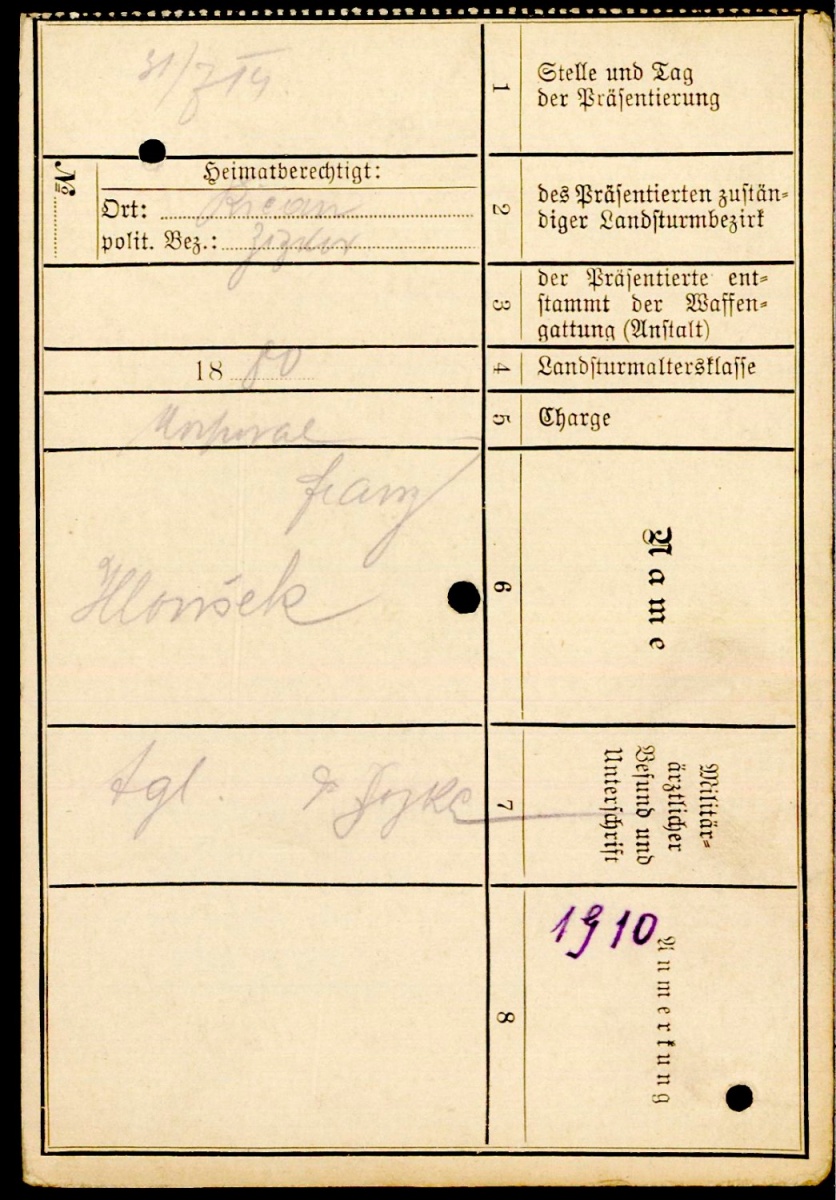 1
Stelle und Tag
der Präsentierung
31/7 14
2
des Präsentierten zustän-
diger Landsturmbezirk
№
Heimatberechtigt:
Ort: Rican
polit. Bez.: Zizkov
3
der Präsentierte ent-
stammt der Waffen-
gattung (Anstalt)
4
Landsturmaltersklasse
18 80
5
Charge
Korporal
6
Name
Franz
Hloušek
7
Militär-
ärztlicher
Befund und
Unterschrift
tgl.
8
Anmerkung
1910